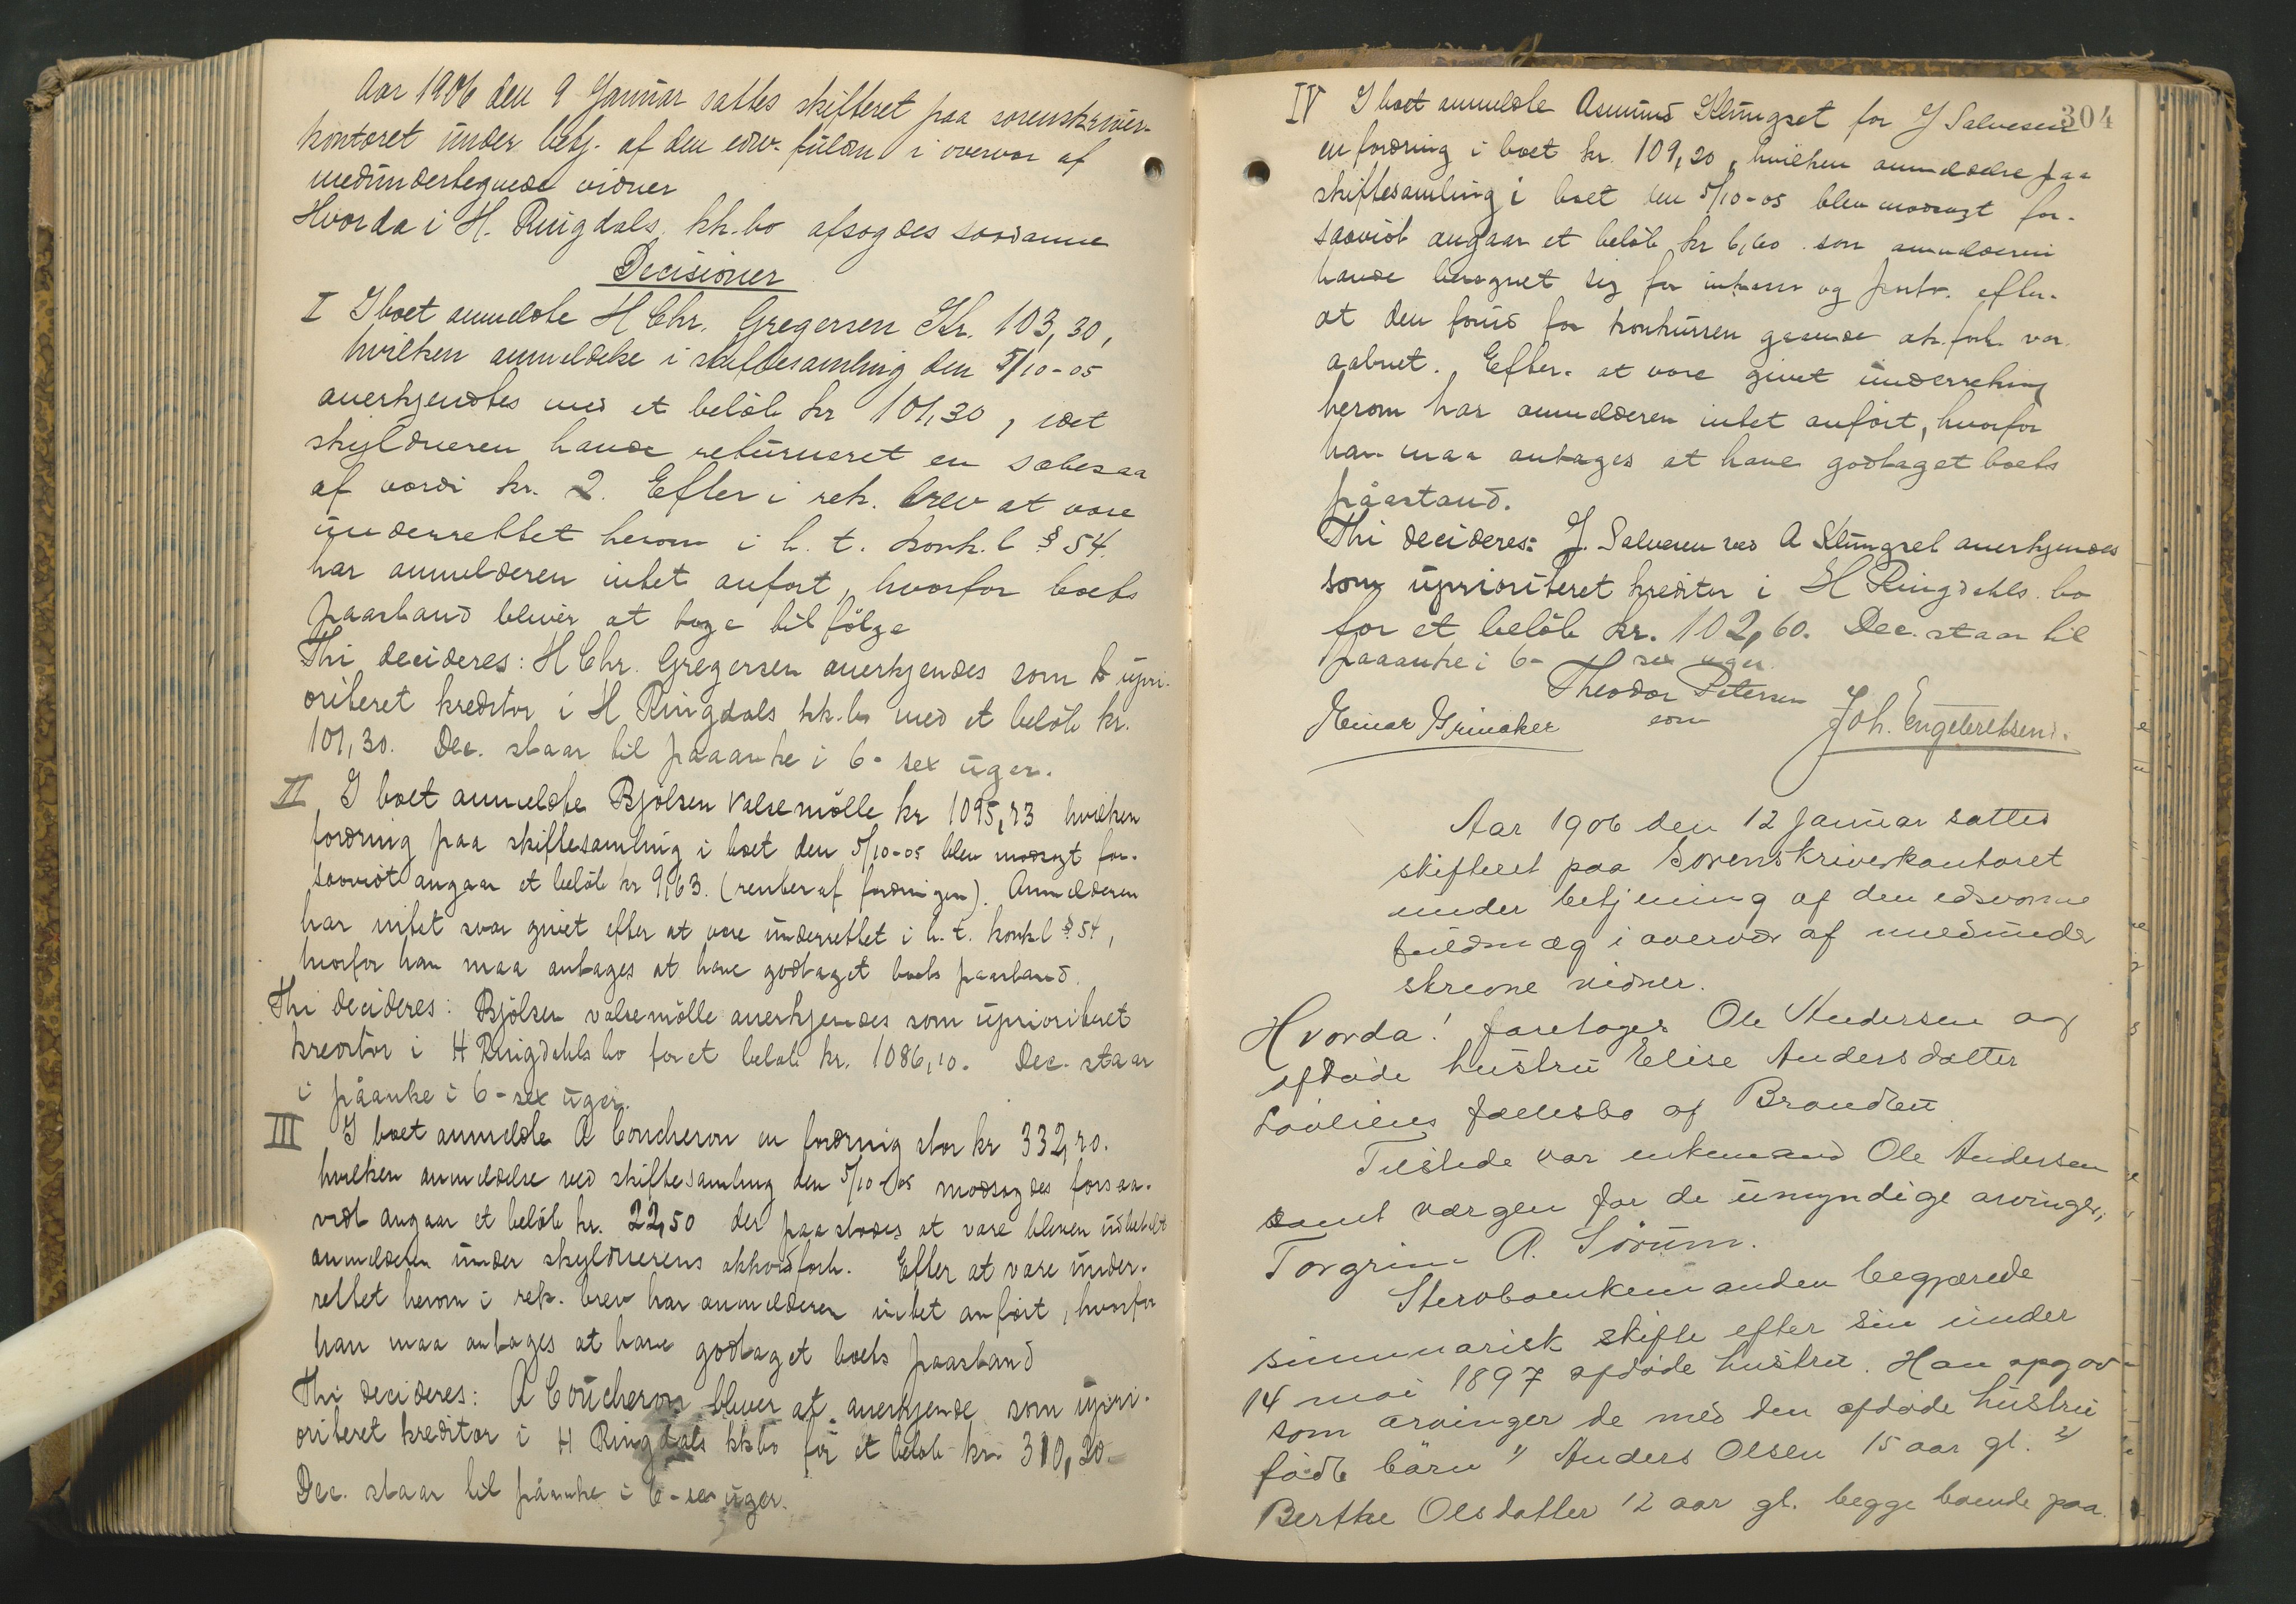 Aar 1906 den 9 Januar sattes skifteret paa sorenskriver-
kontoret under betj. af den edsv. fuldm. i overvær af
medundertegnede vidner
Hvorda i H. Ringdals kk.bo afsagdes saadanne
Decisioner
I I boet anmeldte H Chr. Gregersen Kr. 103,30,
hvilken anmeldelse i skiftesamling den 5/10-05
anerkjendtes med et beløb kr 101,30, idet
skyldneren havde returneret en
af værdi kr. 2. Efter i rek. brev at være
underrettet herom i h. t. konk.l § 54.
har anmelderen intet anført, hvorfor boets
paastand bliver at tage til følge
Thi decideres: H Chr. Gregersen anerkjendes som upri-
oriteret kreditor i H Ringdals kk.bo med et beløb kr.
101,30. Dec. staar til paaanke i 6- sex uger.
II I boet anmeldte Bjølsen Valsemølle kr 1095,73 hvilken
fordring paa skiftesamling i boet den 5/10-05 blev modsagt for-
saavidt angaar et beløb kr 9,63. (renter af fordringen). Anmelderen
har intet svar givet efter at være underrettet i h. t. konk.l § 54,
hvorfor han maa antages at have godtaget boets paastand.
Thi decideres: Bjølsen valsemølle anerkjendes som uprioriteret
kreditor i H Ringdahls bo for et beløb kr. 1086,10. Dec. staar
i påanke i 6- sex uger.
III I boet anmeldte A Coucheron en fordring stor kr 332,70.
hvilken anmeldelse ved skiftesamling den 5/10-05 modsagdes forsaa-
vidt angaar et beløb kr. 22,50 der paastodes at være bleven udbetalt
anmelderen under skyldnerens akkordforh. Efter at være under-
rettet herom i rek. brev har anmelderen intet anført, hvorfor
han maa antages at have godtaget boets paastand
Thi decideres: A Coucheron bliver at anerkjende som upri-
oriteret kreditor i H Ringdals kkbo for et beløb kr. 310,20.
Dec. staar til påanke i 6- sex uger.
304
IV I boet anmeldte Asmund Klungset for J Salvesen
en fordring i boet kr. 109,20, hvilken anmeldelse paa
skiftesamling i boet den 5/10-05 blev modsagt for-
saavidt angaar et beløb kr 6,60 som anmelderen
havde beregnet sig for inkasso og porto. efter-
at den forud for konkursen gaaende ak.forh. var
aabnet. Efter at være givet underretning
herom har anmelderen intet anført, hvorfor
han maa antages at have godtaget boets
påastand.
Thi decideres: J. Salvesen ved A Klungset anerkjendes
som uprioriteret kreditor i H Ringdahls bo
for et beløb kr. 102,60. Dec. staar til
paaanke i 6- sex uger.
Theodor Petersen
edsv
Einar Grinaker Joh. Engebretsen.
Aar 1906 den 12 Januar sattes
skifteret paa Sorenskriverkontoret
under betjening af den edsvorne
fuldmæg i overvær af medunder
skrevne vidner.
Hvorda! foretoges Ole Andersen og
afdøde hustru Elise Andersdatter
Løvliens fællesbo af Brandbu
Tilstede var enkemand Ole Andersen
samt værgen for de umyndige arvinger,
Torgrim A. Sørum.
Stervboenkemanden begjærede
summarisk skifte efter sin under
14 mai 1897 afdøde hustru. Han opgav
som arvinger de med den afdøde hustru
fødte børn 1) Anders Olsen 15 aar gl. 2)
Berthe Olsdatter 12 aar gl. begge boende paa